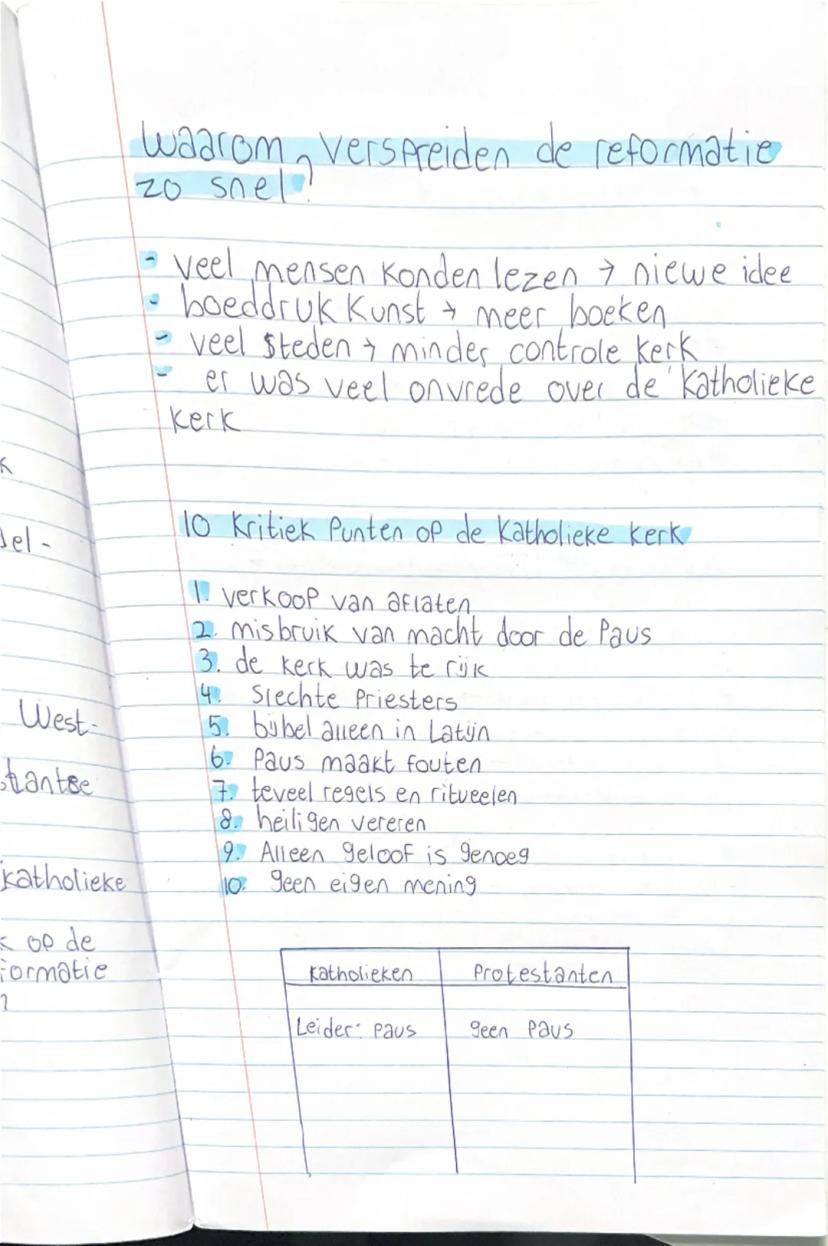 waarom verspreiden de reformatie
zo snel?
- veel mensen konden lezen → niewe idee
- boeddrukkunst → meer boeken
- veel steden → minder controle kerk
- er was veel onvrede over de katholieke
kerk
10 kritiek punten op de katholieke kerk
1. verkoop van aflaten
2. misbruik van macht door de Paus
3. de kerk was te rijk
4. Slechte Priesters
5. bijbel alleen in Latijn
6. Paus maakt fouten
7. teveel regels en ritueelen
8. heiligen vereren
9. Alleen geloof is genoeg
10. geen eigen mening
katholieken Protestanten
Leider: paus geen Paus
k
del-
West-
stantse
katholieke
k op de
formatie
?